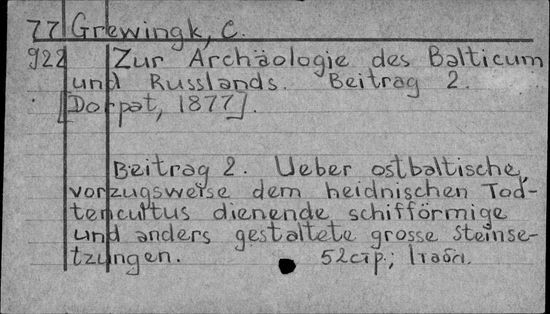 77 Grewingk, C.
922 Zur Archäologie des Balticum
und Russlands. Beitrag 2.
[Dorpat, 1877].
Beitrag 2. Ueber ostbaltische,
vorzugsweise dem heidnischen Tod-
tencultus dienende schifförmige
und anders gestaltete grosse Steinse-
tzungen. 52стр.; 1табл.